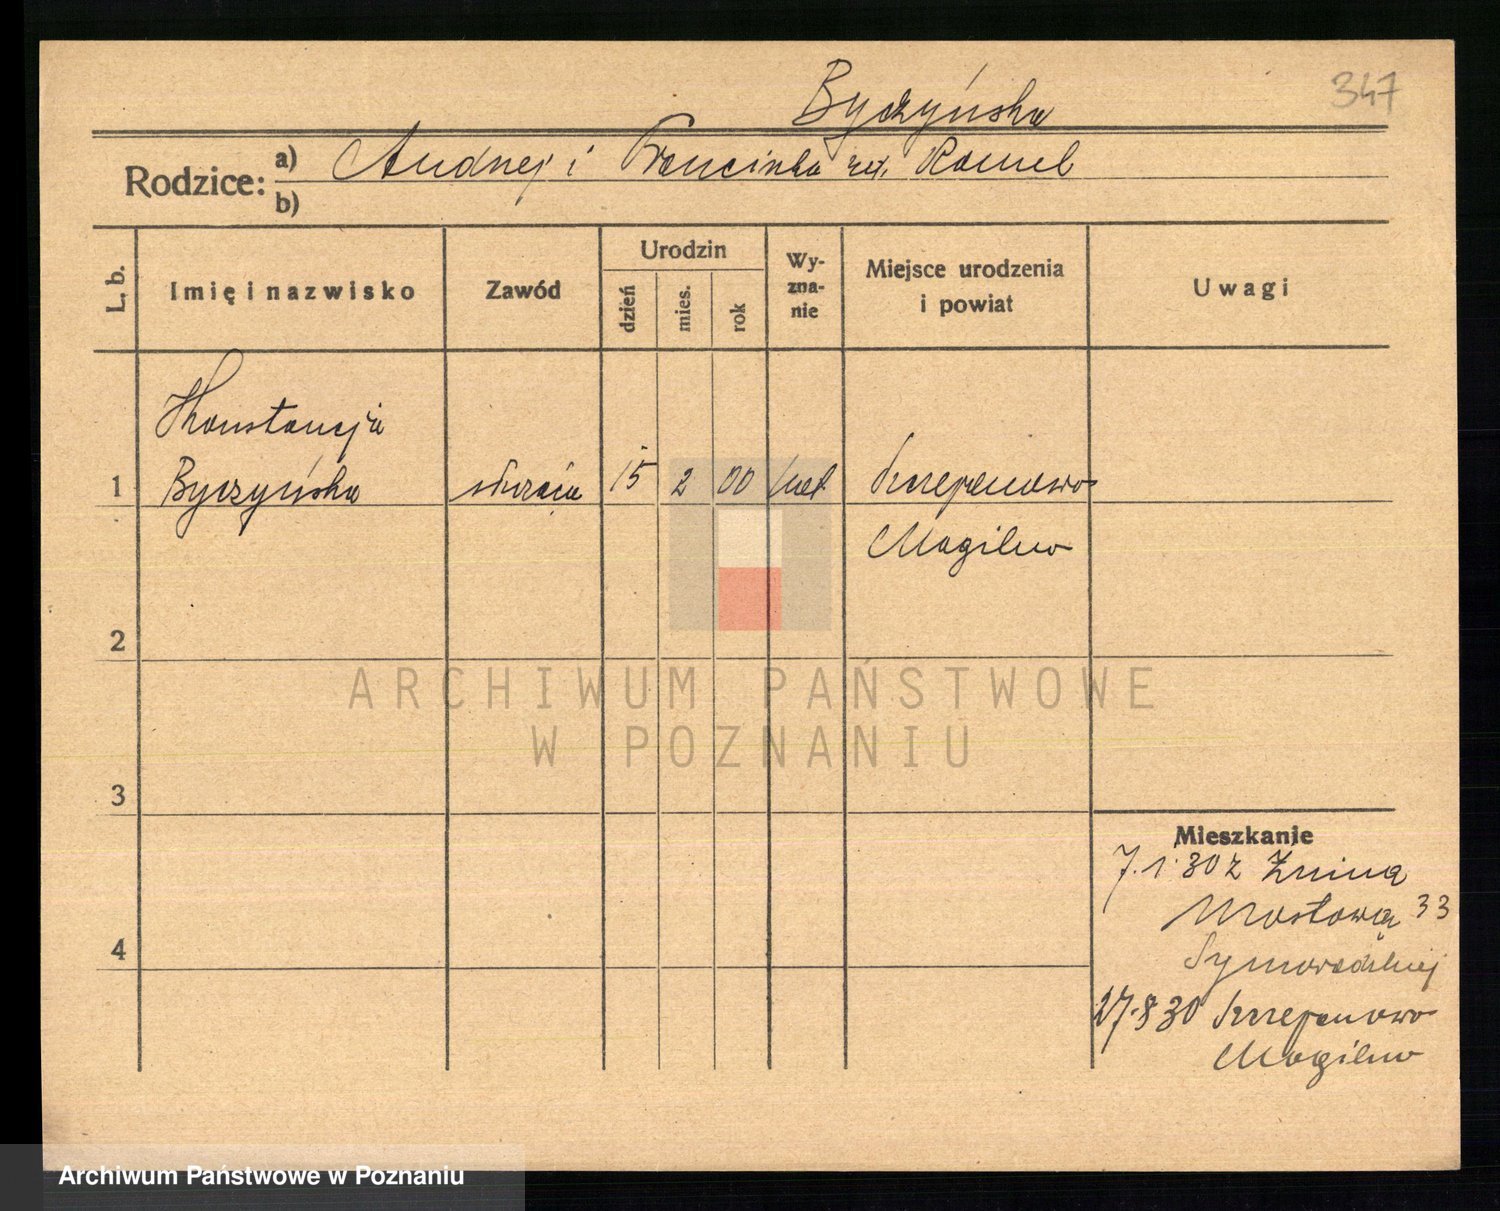 347
Byczyńska
Rodzice: a) Andrzej i Franciszka
b)
L. b.
Imię i nazwisko
Zawód
Urodzin
dzień
mies.
rok
Wy-
zna-
nie
Miejsce urodzenia
i powiat
Uwagi
Konstancja
1 Byczyńska służąca 15 2 00 kat. Szczepanowo
Mogilno
2
3
4
Mieszkanie
7.1.30 z Żnina
Mostowa 33
27.8 30 Szczepanowo
Mogilno
ARCHIWUM PAŃSTWOWE
W POZNANIU
Archiwum Państwowe w Poznaniu